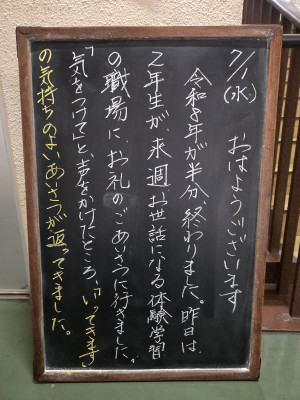 7/1(水) おはようございます
令和8年が半分終わりました。昨日は、
2年生が、来週お世話になる体験学習
の職場に、お礼のごあいさつに行きました。
「気をつけて」と声をかけたところ、「いってきます」
の気持ちのよいあいさつが返ってきました。